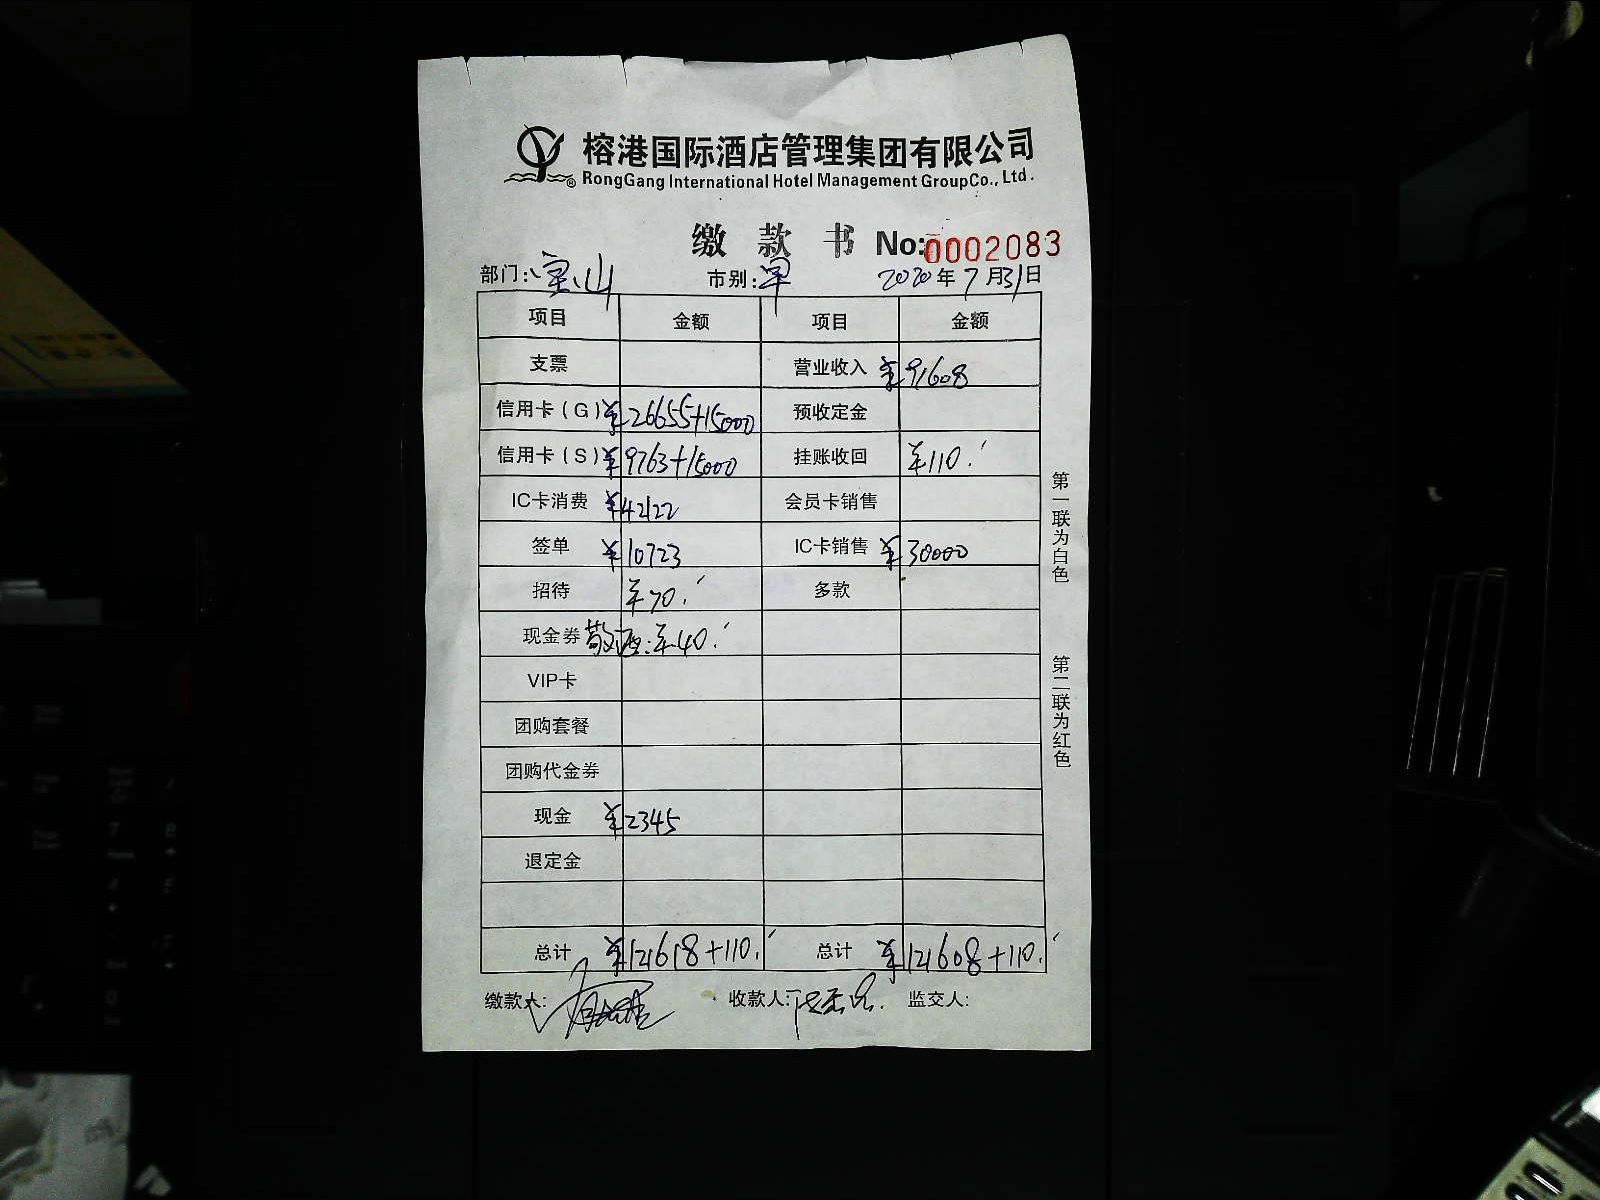 榕港国际酒店管理集团有限公司
RongGang International Hotel Management GroupCo., Ltd.
缴款书 No:0002083
部门: 宝山 市别: 早 2020年7月31日
项目 金额 项目 金额
支票 营业收入 ¥91608
信用卡(G) ¥26655+15000 预收定金
信用卡(S) ¥9763+15000 挂账收回 ¥110.
IC卡消费 ¥42122 会员卡销售
签单 ¥10723 IC卡销售 ¥30000
招待 ¥70. 多款
现金券 敬酒:¥40.
VIP卡
团购套餐
团购代金券
现金 ¥2345
退定金
总计 ¥121618+110. 总计 ¥121608+110.
缴款人: 收款人: 监交人:
第一联为白色
第二联为红色